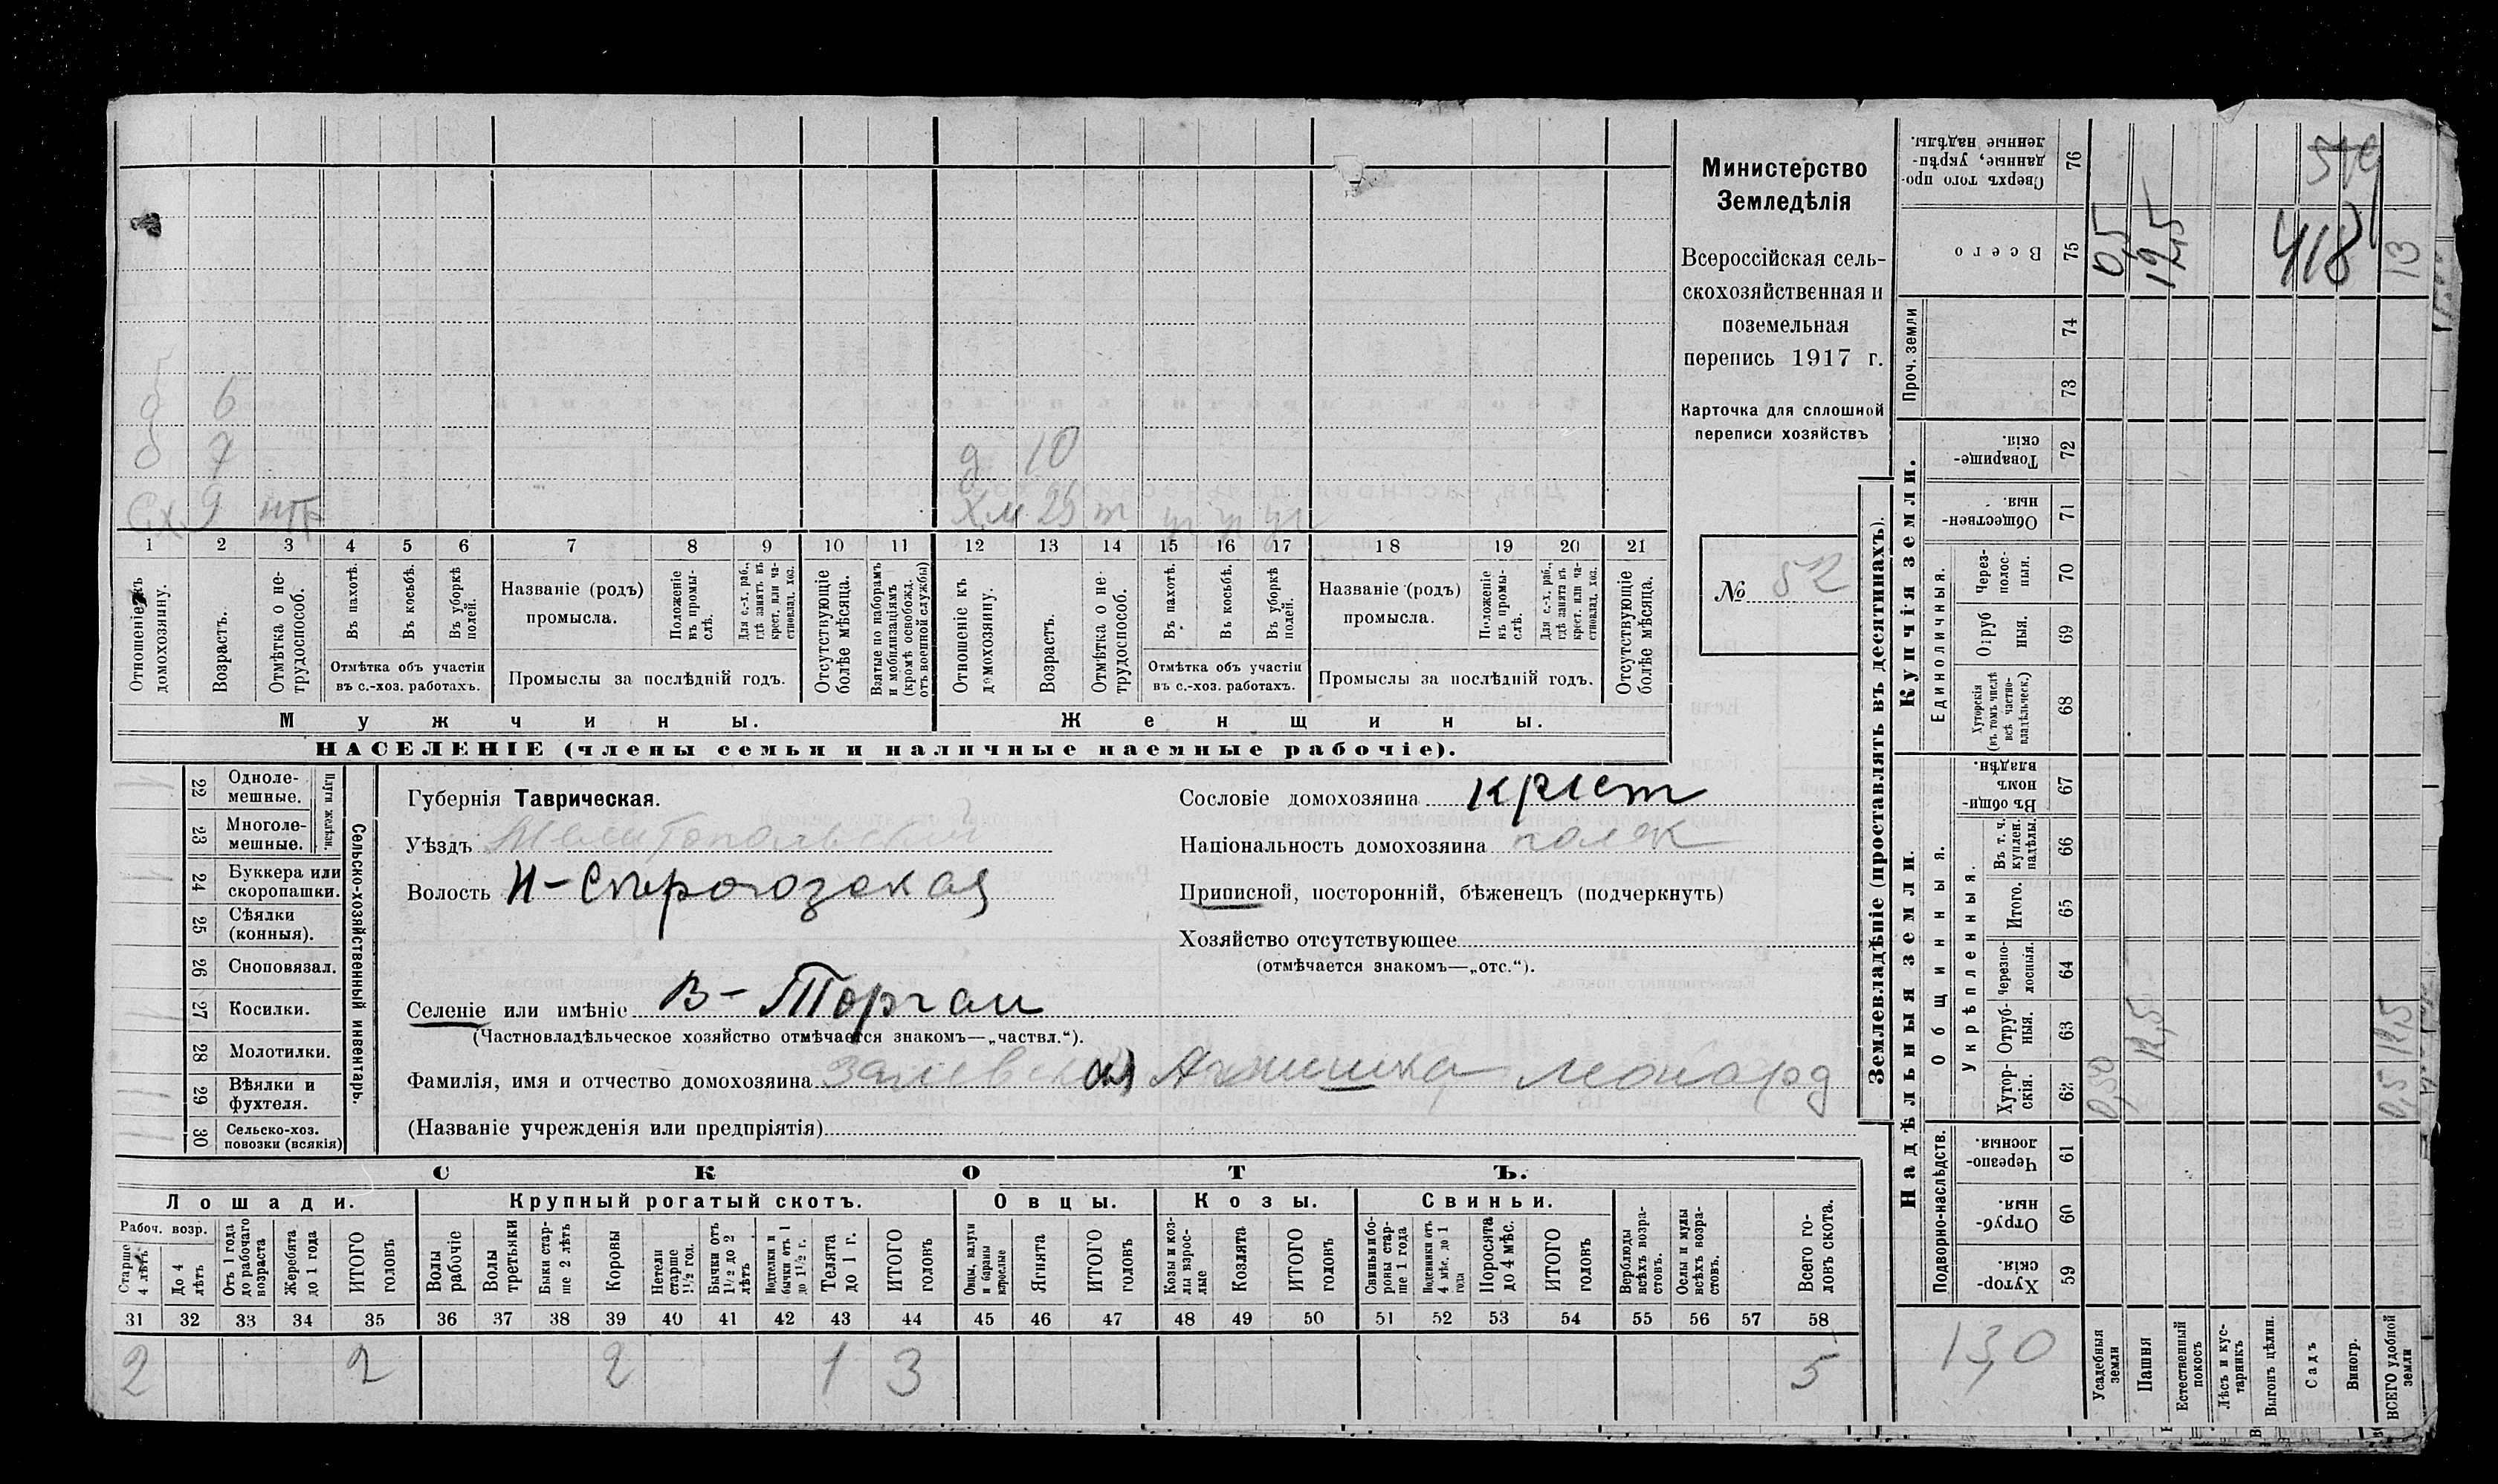 Министерство
Земледѣлія
Всероссійская сель-
скохозяйственная и
поземельная
перепись 1917 г.
Карточка для сплошной
переписи хозяйствъ
№ 52
б 6
7
д 10
Сх. 9 нтр
Х.м 25 т
1 2 3 4 5 6 7 8 9 10 11 12 13 14 15 16 17 18 19 20 21
Отношеніе къ домохозяину.
Возрастъ.
Отмѣтка о не-трудоспособ.
Въ пахотѣ.
Въ косьбѣ.
Въ уборкѣ полей.
Отмѣтка объ участіи
въ с.-хоз. работахъ.
Названіе (родъ)
промысла.
Положеніе въ промы-слѣ.
Для с.-х. раб., гдѣ занятъ въ крест. или ча-стновлад. хоз.
Промыслы за послѣдній годъ.
Отсутствующіе болѣе мѣсяца.
Взятые по наборамъ и мобилизаціямъ (кромѣ освобожд. отъ военной службы)
Отношеніе къ домохозяину.
Возрастъ.
Отмѣтка о не-трудоспособ.
Въ пахотѣ.
Въ косьбѣ.
Въ уборкѣ полей.
Отмѣтка объ участіи
въ с.-хоз. работахъ.
Названіе (родъ)
промысла.
Положеніе въ промы-слѣ.
Для с.-х. раб., гдѣ занята въ крест. или ча-стновлад. хоз.
Промыслы за послѣдній годъ.
Отсутствующіе болѣе мѣсяца.
Мужчины.
Женщины.
НАСЕЛЕНІЕ (члены семьи и наличные наемные рабочіе).
22 Одноле-мешные.
23 Многоле-мешные.
Плуги желѣзн.
24 Буккера или скоропашки.
25 Сѣялки (конныя).
26 Сноповязал.
27 Косилки.
28 Молотилки.
29 Вѣялки и фухтеля.
30 Сельско-хоз. повозки (всякія)
Сельско-хозяйственный инвентарь.
Губернія Таврическая.
Уѣздъ Мелитопольский
Волость Н-Сѣрогозская
Селеніе или имѣніе В-Торгаи
(Частновладѣльческое хозяйство отмѣчается знакомъ—„частвл.“).
Сословіе домохозяина крест
Національность домохозяина поляк
Приписной, посторонній, бѣженецъ (подчеркнуть)
Хозяйство отсутствующее
(отмѣчается знакомъ—„отс.“).
Фамилія, имя и отчество домохозяина Леонард
(Названіе учрежденія или предпріятія)
СКОТЪ.
Лошади. Крупный рогатый скотъ. Овцы. Козы. Свиньи.
Рабоч. возр.
Старше 4 лѣтъ
До 4 лѣтъ
Отъ 1 года до рабочаго возраста
Жеребята до 1 года
ИТОГО головъ
Волы рабочіе
Волы третьяки
Быки стар-ше 2 лѣтъ
Коровы
Нетели старше 1½ год.
Бычки отъ 1½ до 2 лѣтъ
Подтелки и бычки отъ 1 до 1½ г.
Телята до 1 г.
ИТОГО головъ
Овцы, валухи и бараны взрослые
Ягнята
ИТОГО головъ
Козы и коз-лы взрос-лые
Козлята
ИТОГО головъ
Свиньи и бо-ровы стар-ше 1 года
Подсвинки отъ 4 мѣс. до 1 года
Поросята до 4 мѣс.
ИТОГО головъ
Верблюды всѣхъ возра-стовъ.
Ослы и мулы всѣхъ возра-стовъ.
Всего го-ловъ скота.
31 32 33 34 35 36 37 38 39 40 41 42 43 44 45 46 47 48 49 50 51 52 53 54 55 56 57 58
2 2 2 1 3 5
Землевладѣніе (проставлять въ десятинахъ).
Надѣльныя земли.
Купчія земли.
Подворно-наслѣдств.
Хутор-скія. 59
Отруб-ныя. 60
Черезпо-лосныя. 61
Общинныя.
Укрѣпленныя.
Хутор-скія. 62
Отруб-ныя. 63
Черезпо-лосныя. 64
Итого. 65
Въ т. ч. куплен. надѣлы. 66
Въ общи-номъ владѣн. 67
Единоличныя.
Хуторскія (въ томъ числѣ всѣ частно-владѣльческ.) 68
Отруб ныя. 69
Через-полос-ныя. 70
Обществен-ныя. 71
Товарище-скія. 72
Проч. земли 73 74
Всего 75
Сверхъ того про-данные, укрѣп-ленные надѣлы. 76
0,5
12,5
418
13
0,50
12,5
0,5 12,5
13,0
Усадебныя земли
Пашня
Естественный покосъ
Лѣсъ и кус-тарникъ
Выгонъ цѣлин.
Садъ
Виногр.
ВСЕГО удобной земли